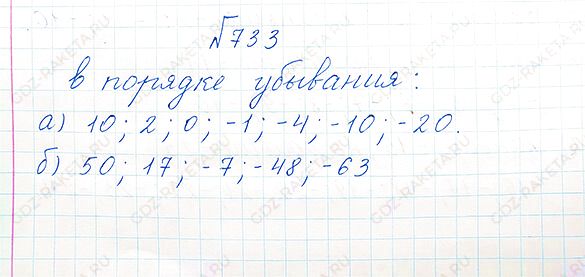 №733
в порядке убывания:
а) 10; 2; 0; -1; -4; -10; -20.
б) 50; 17; -7; -48; -63